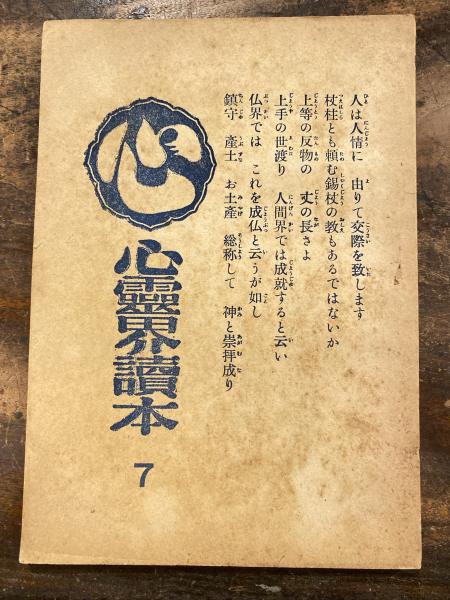 人は人情に　由りて交際を致します
杖柱とも頼む錫杖の教もあるではないか
上等の反物の　丈の長さよ
上手の世渡り　人間界では成就すると云い
仏界では　これを成仏と云うが如し
鎮守　産土　お土産　総称して　神と崇拝成り
心
心霊界讀本
7